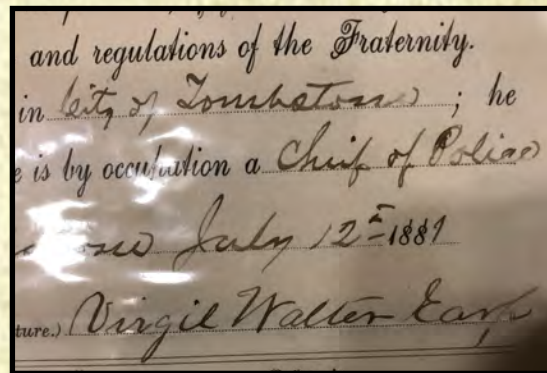 and regulations of the Fraternity.
in City of Tombstone ; he
e is by occupation a Chief of Police
July 12 1881
ture.) Virgil Walter Earp